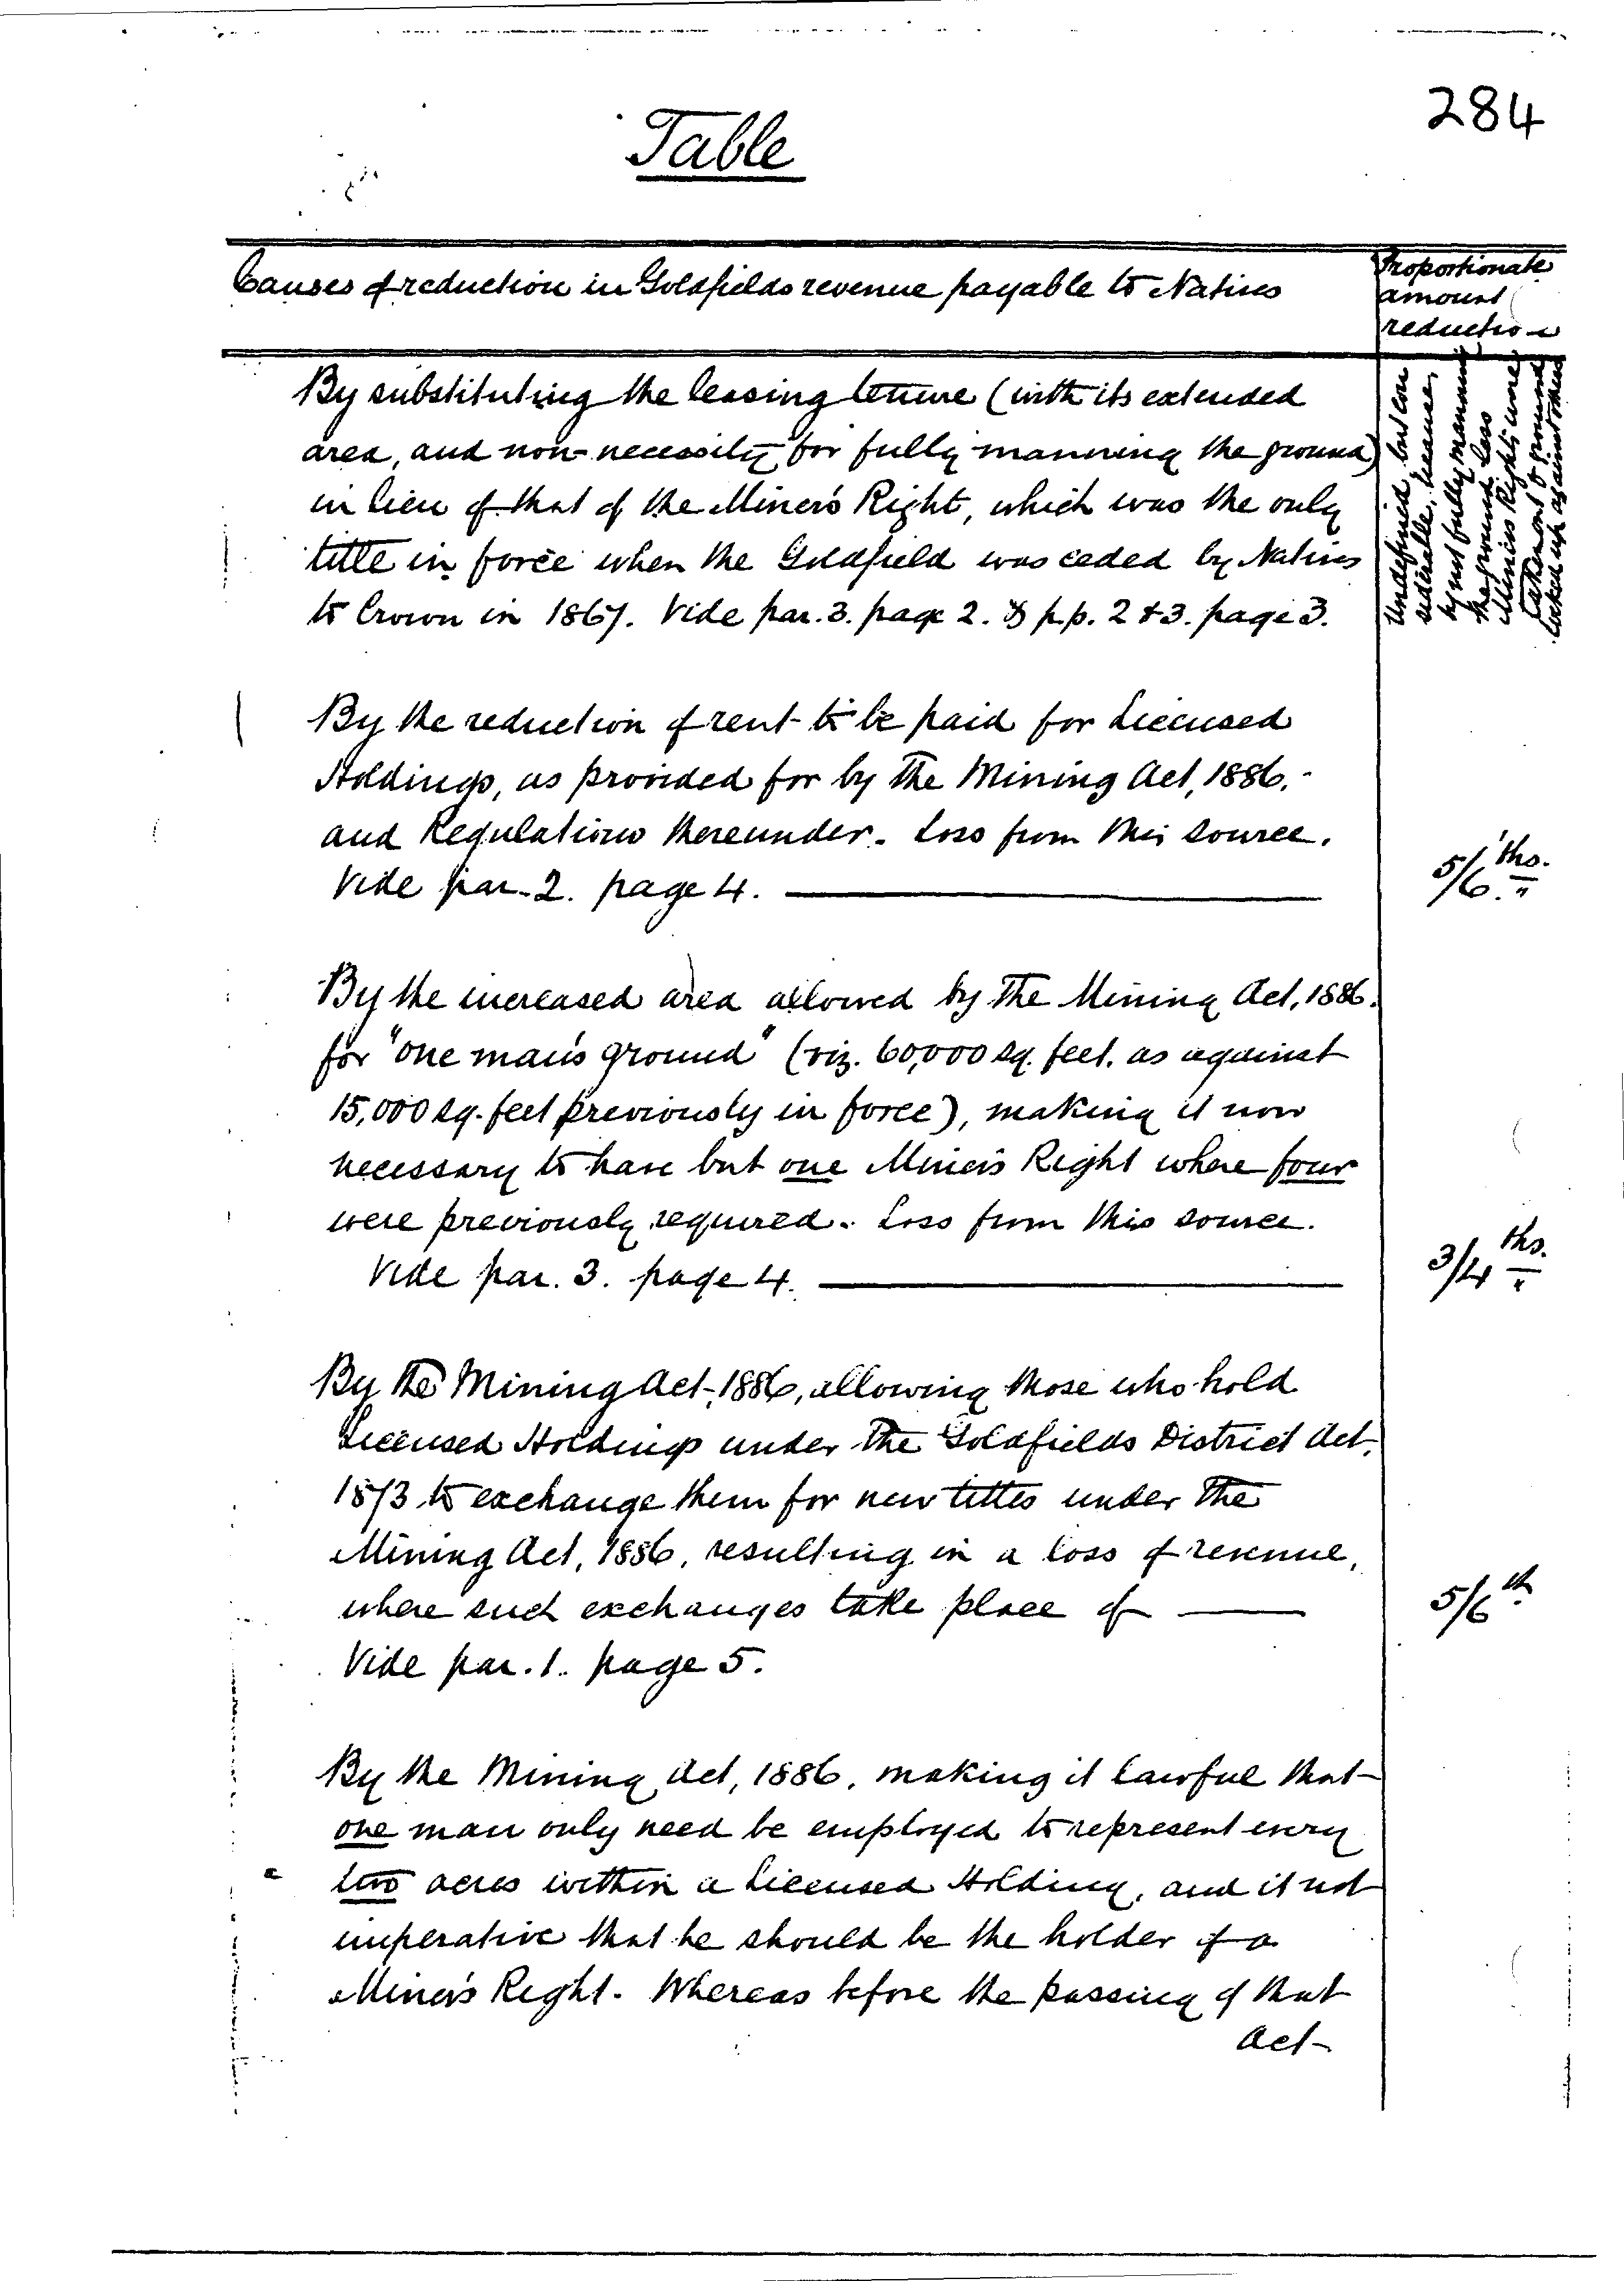 284
Table
Causes of reduction in Goldfields revenue payable to Natives
Proportionate
amount
reduction
By substituting the leasing tenure (with its extended
area, and non-necessity for fully manning the ground)
in lieu of that of the Miner's Right, which was the only
title in force when the Goldfield was ceded by Natives
to Crown in 1867. Vide par. 3. page 2. & p.p. 2 & 3. page 3.
Undefined, but con
siderable, because,
by not fully manning
the ground, less
Miners Rights were
taken out & ground
locked up against others
By the reduction of rent to be paid for Licensed
Holdings, as provided for by The Mining Act, 1886.
and Regulations thereunder. Loss from this source.
Vide par. 2. page 4.
5/6ths.
By the increased area allowed by The Mining Act, 1886.
for "one man's ground" (viz. 60,000 sq. feet. as against
15,000 sq. feet previously in force), making it now
necessary to have but one Miner's Right where four
were previously required. Loss from this source.
Vide par. 3. page 4.
3/4ths.
By The Mining Act, 1886, allowing those who hold
Licensed Holdings under The Goldfields District Act,
1873 to exchange them for new titles under The
Mining Act, 1886, resulting in a loss of revenue,
where such exchanges take place of
5/6th
Vide par. 1. page 5.
By the Mining Act, 1886, making it lawful that
one man only need be employed to represent every
two acres within a Licensed Holding, and it not
imperative that he should be the holder of a
Miner's Right. Whereas before the passing of that
Act